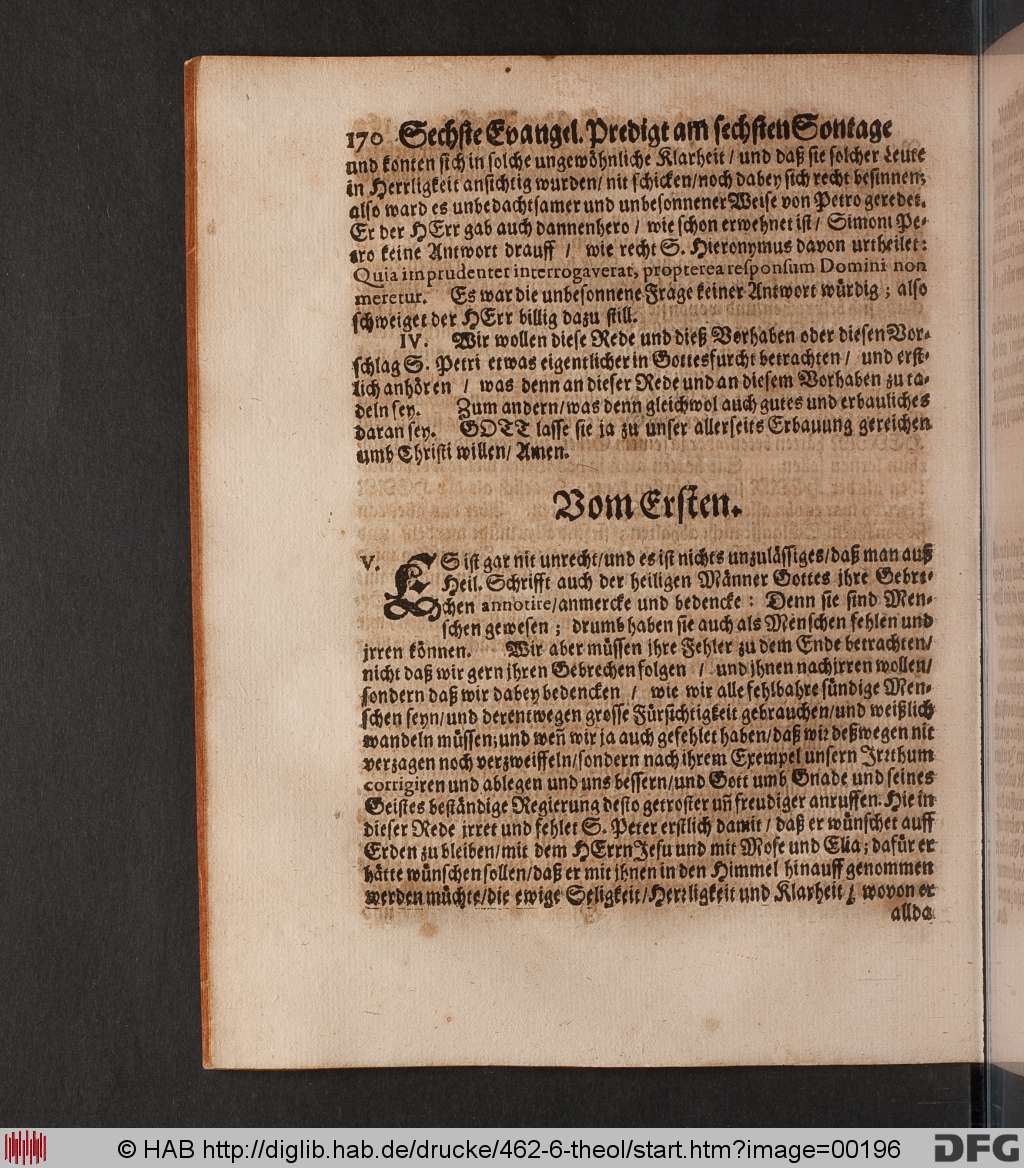 170 Sechste Evangel. Predigt am sechsten Sontage
und konten sich in solche ungewöhnliche Klarheit / und daß sie solcher Leute
in Herrligkeit ansichtig wurden / nit schicken / noch dabey sich recht besinnen;
also ward es unbedachtsamer und unbesonnener Weise von Petro geredet.
Er der HErr gab auch dannenhero / wie schon erwehnet ist / Simoni Pe-
tro keine Antwort drauff / wie recht S. Hieronymus davon urtheilet:
Quia imprudenter interrogaverat, propterea responsum Domini non
meretur. Es war die unbesonnene Frage keiner Antwort würdig; also
schweiget der HErr billig dazu still.
IV. Wir wollen diese Rede und dieß Vorhaben oder diesen Vor-
schlag S. Petri etwas eigentlicher in Gottesfurcht betrachten / und erst-
lich anhören / was denn an dieser Rede und an diesem Vorhaben zu ta-
deln sey. Zum andern / was denn gleichwol auch gutes und erbauliches
daran sey. GOTT lasse sie ja zu unser allerseits Erbauung gereichen
umb Christi willen / Amen.
Vom Ersten.
V. ES ist gar nit unrecht / und es ist nichts unzulässiges / daß man auß
Heil. Schrifft auch der heiligen Männer Gottes jhre Gebre-
chen annotire / anmercke und bedencke: Denn sie sind Men-
schen gewesen; drumb haben sie auch als Menschen fehlen und
jrren können. Wir aber müssen jhre Fehler zu dem Ende betrachten /
nicht daß wir gern jhren Gebrechen folgen / und jhnen nachjrren wollen /
sondern daß wir dabey bedencken / wie wir alle fehlbahre sündige Men-
schen seyn / und derentwegen grosse Fürsichtigkeit gebrauchen / und weißlich
wandeln müssen; und weñ wir ja auch gefehlet haben / daß wir deßwegen nit
verzagen noch verzweiffeln / sondern nach ihrem Exempel unsern Jrrthum
corrigiren und ablegen und uns bessern / und Gott umb Gnade und seines
Geistes beständige Regierung desto getroster uñ freudiger anruffen. Hie in
dieser Rede jrret und fehlet S. Peter erstlich damit / daß er wünschet auff
Erden zu bleiben / mit dem HErrn Jesu und mit Mose und Elia; dafür er
hätte wünschen sollen / daß er mit jhnen in den Himmel hinauff genommen
werden müchte / die ewige Seligkeit / Herrligkeit und Klarheit / wovon er
allda
© HAB http://diglib.hab.de/drucke/462-6-theol/start.htm?image=00196
DFG